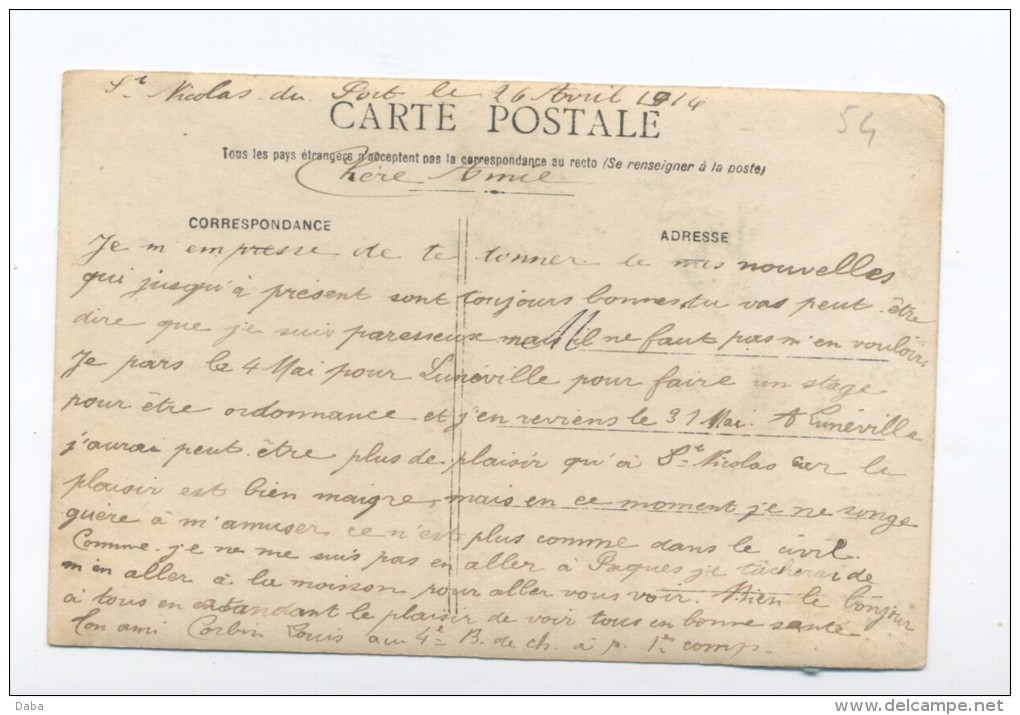 St Nicolas du Port le 26 Avril 1914
CARTE POSTALE
54
Tous les pays étrangers n'acceptent pas la correspondance au recto (Se renseigner à la poste)
Chère Amie
CORRESPONDANCE
ADRESSE
Je m'empresse de te donner de mes nouvelles
qui jusqu'à présent sont toujours bonnes tu vas peut être
dire que je suis paresseux mais il ne faut pas m'en vouloir.
Je pars le 4 Mai pour Lunéville pour faire un stage
pour être ordonnance et j'en reviens le 31 Mai. A Lunéville
j'aurai peut être plus de plaisir qu'à St Nicolas car le
plaisir est bien maigre, mais en ce moment je ne songe
guère à m'amuser ce n'est plus comme dans le civil.
Comme je ne me suis pas en aller à Paques je tâcherai de
m'en aller à la moisson pour aller vous voir. Bien le bonjour
à tous en attandant le plaisir de voir tous en bonne santé.
Ton ami Corbin Louis au 4e B. de ch. à p. 1re comp.
Daba
www.delcampe.net